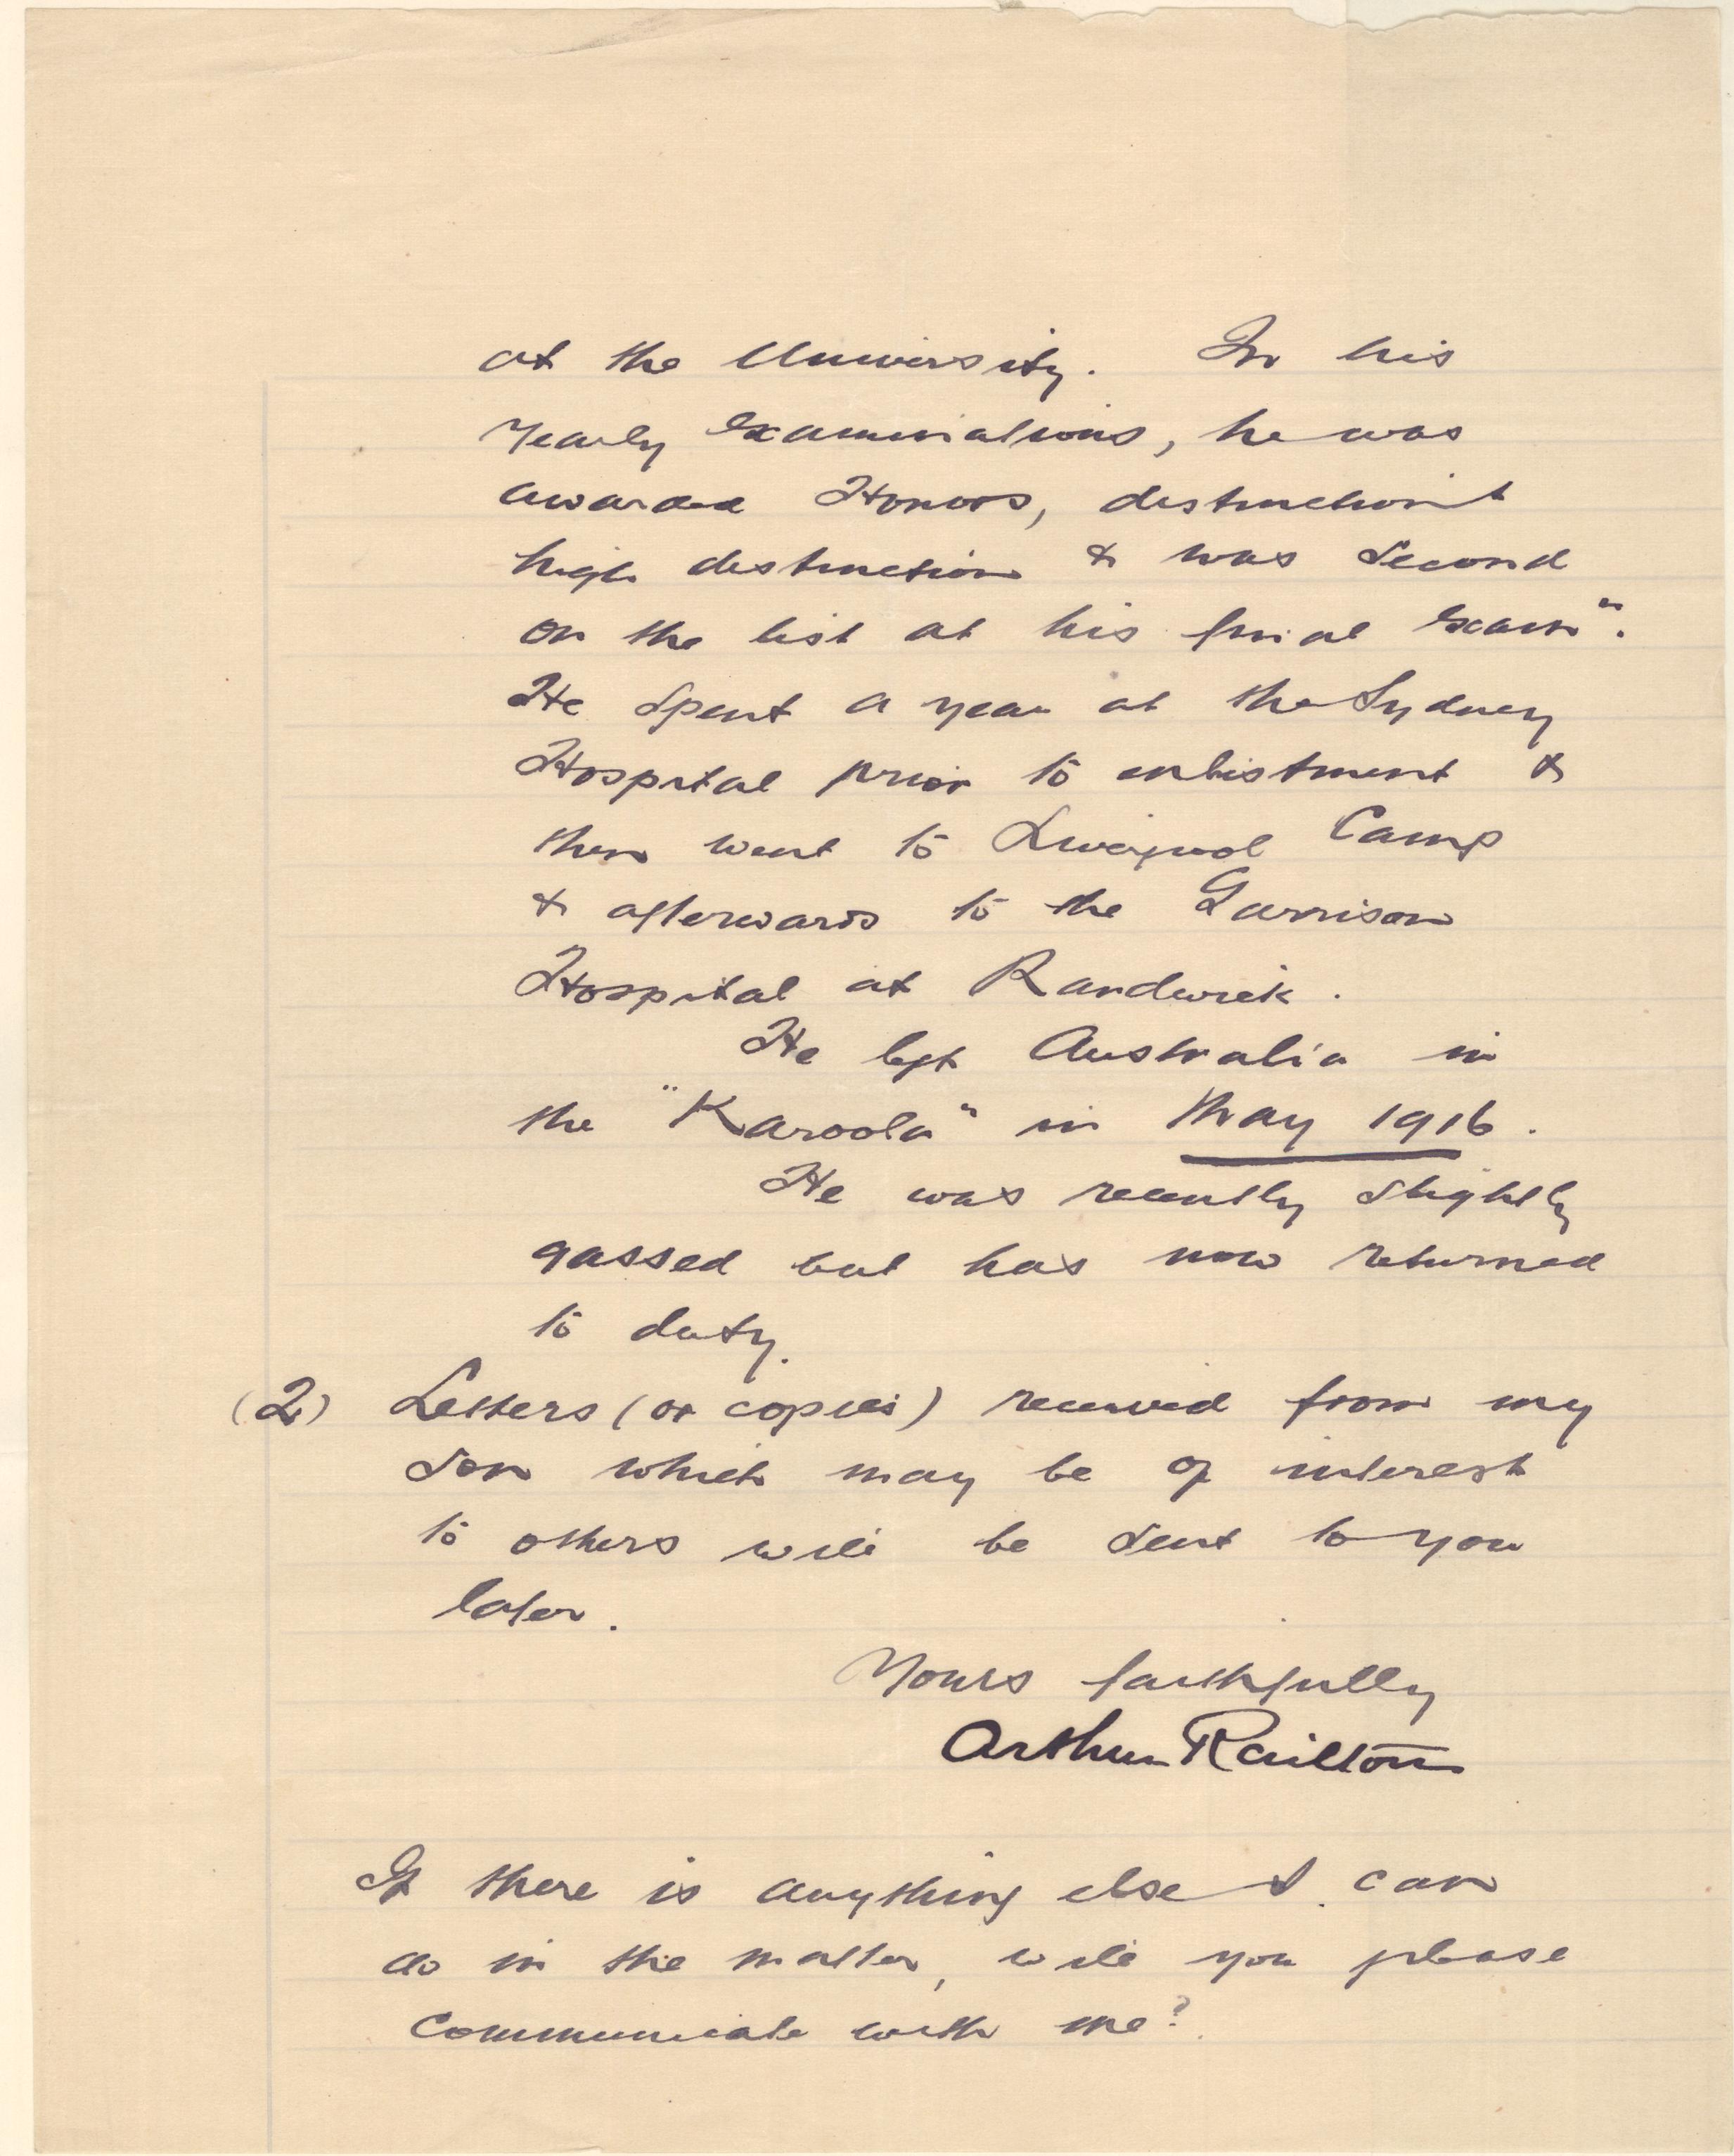 at the University. In his
yearly examinations, he was
awarded Honors, distinction &
high distinction & was second
on the list at his final Exam".
He spent a year at the Sydney
Hospital prior to enlistment &
then went to Liverpool Camp
& afterwards to the Garrison
Hospital at Randwick.
He left Australia in
the "Karoola" in May 1916.
He was recently slightly
gassed but has now returned
to duty.
(2) Letters (or copies) received from my
son which may be of interest
to others will be sent to you
later.
Yours faithfully
Arthur Railton
If there is anything else I can
do in the matter, will you please
communicate with me?